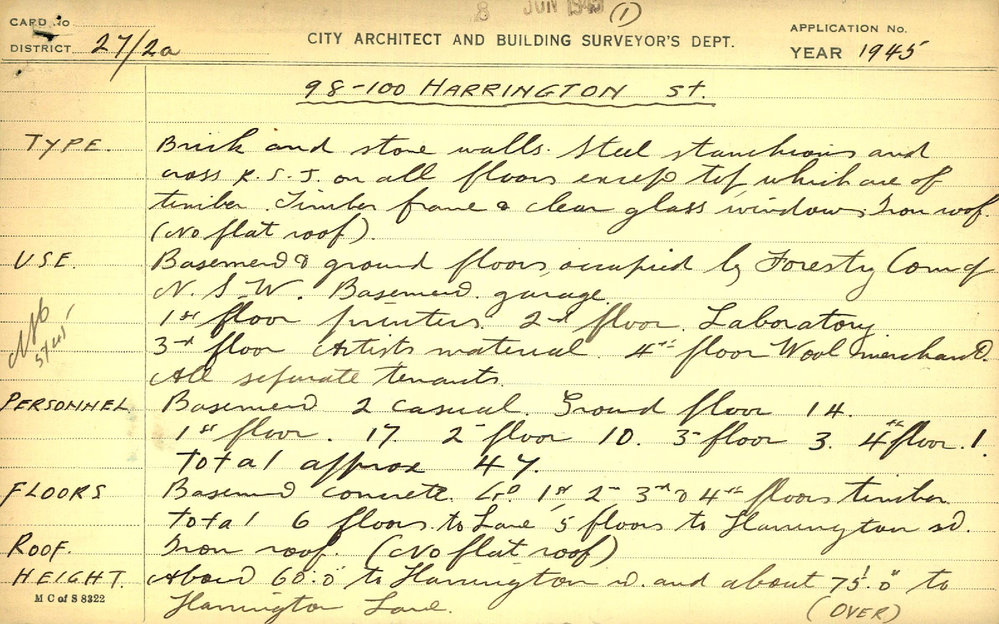 8 JUN 1945 (1)
CARD No
DISTRICT 27/2a
CITY ARCHITECT AND BUILDING SURVEYOR'S DEPT.
APPLICATION No.
YEAR 1945
98-100 HARRINGTON St.
TYPE. Brick and stone walls. Steel stanchions and
cross R.S.J. on all floors except top which are of
timber. Timber frame & clear glass windows. Iron roof.
(No flat roof).
USE. Basement & ground floors occupied by Forestry Com of
N.S.W. Basement garage.
1st floor printers. 2nd floor. Laboratory.
3rd floor Artists material. 4th floor Wool merchant.
All separate tenants.
PERSONNEL Basement 2 casual. Ground floor 14.
1st floor. 17. 2nd floor 10. 3rd floor 3. 4th floor. 1.
Total approx 47.
FLOORS Basement concrete. Gd 1st, 2nd 3rd & 4th floors timber
Total 6 floors to Lane, 5 floors to Harrington st.
ROOF. Iron roof. (No flat roof)
HEIGHT. About 60'.0" to Harrington st. and about 75'.0" to
Harrington Lane.
(OVER)
M C of S 8322